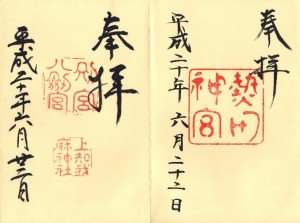 奉拝
熱田神宮
平成二十年六月二十二日
奉拝
別宮八剱宮
上知我麻神社
平成二十年六月廿二日